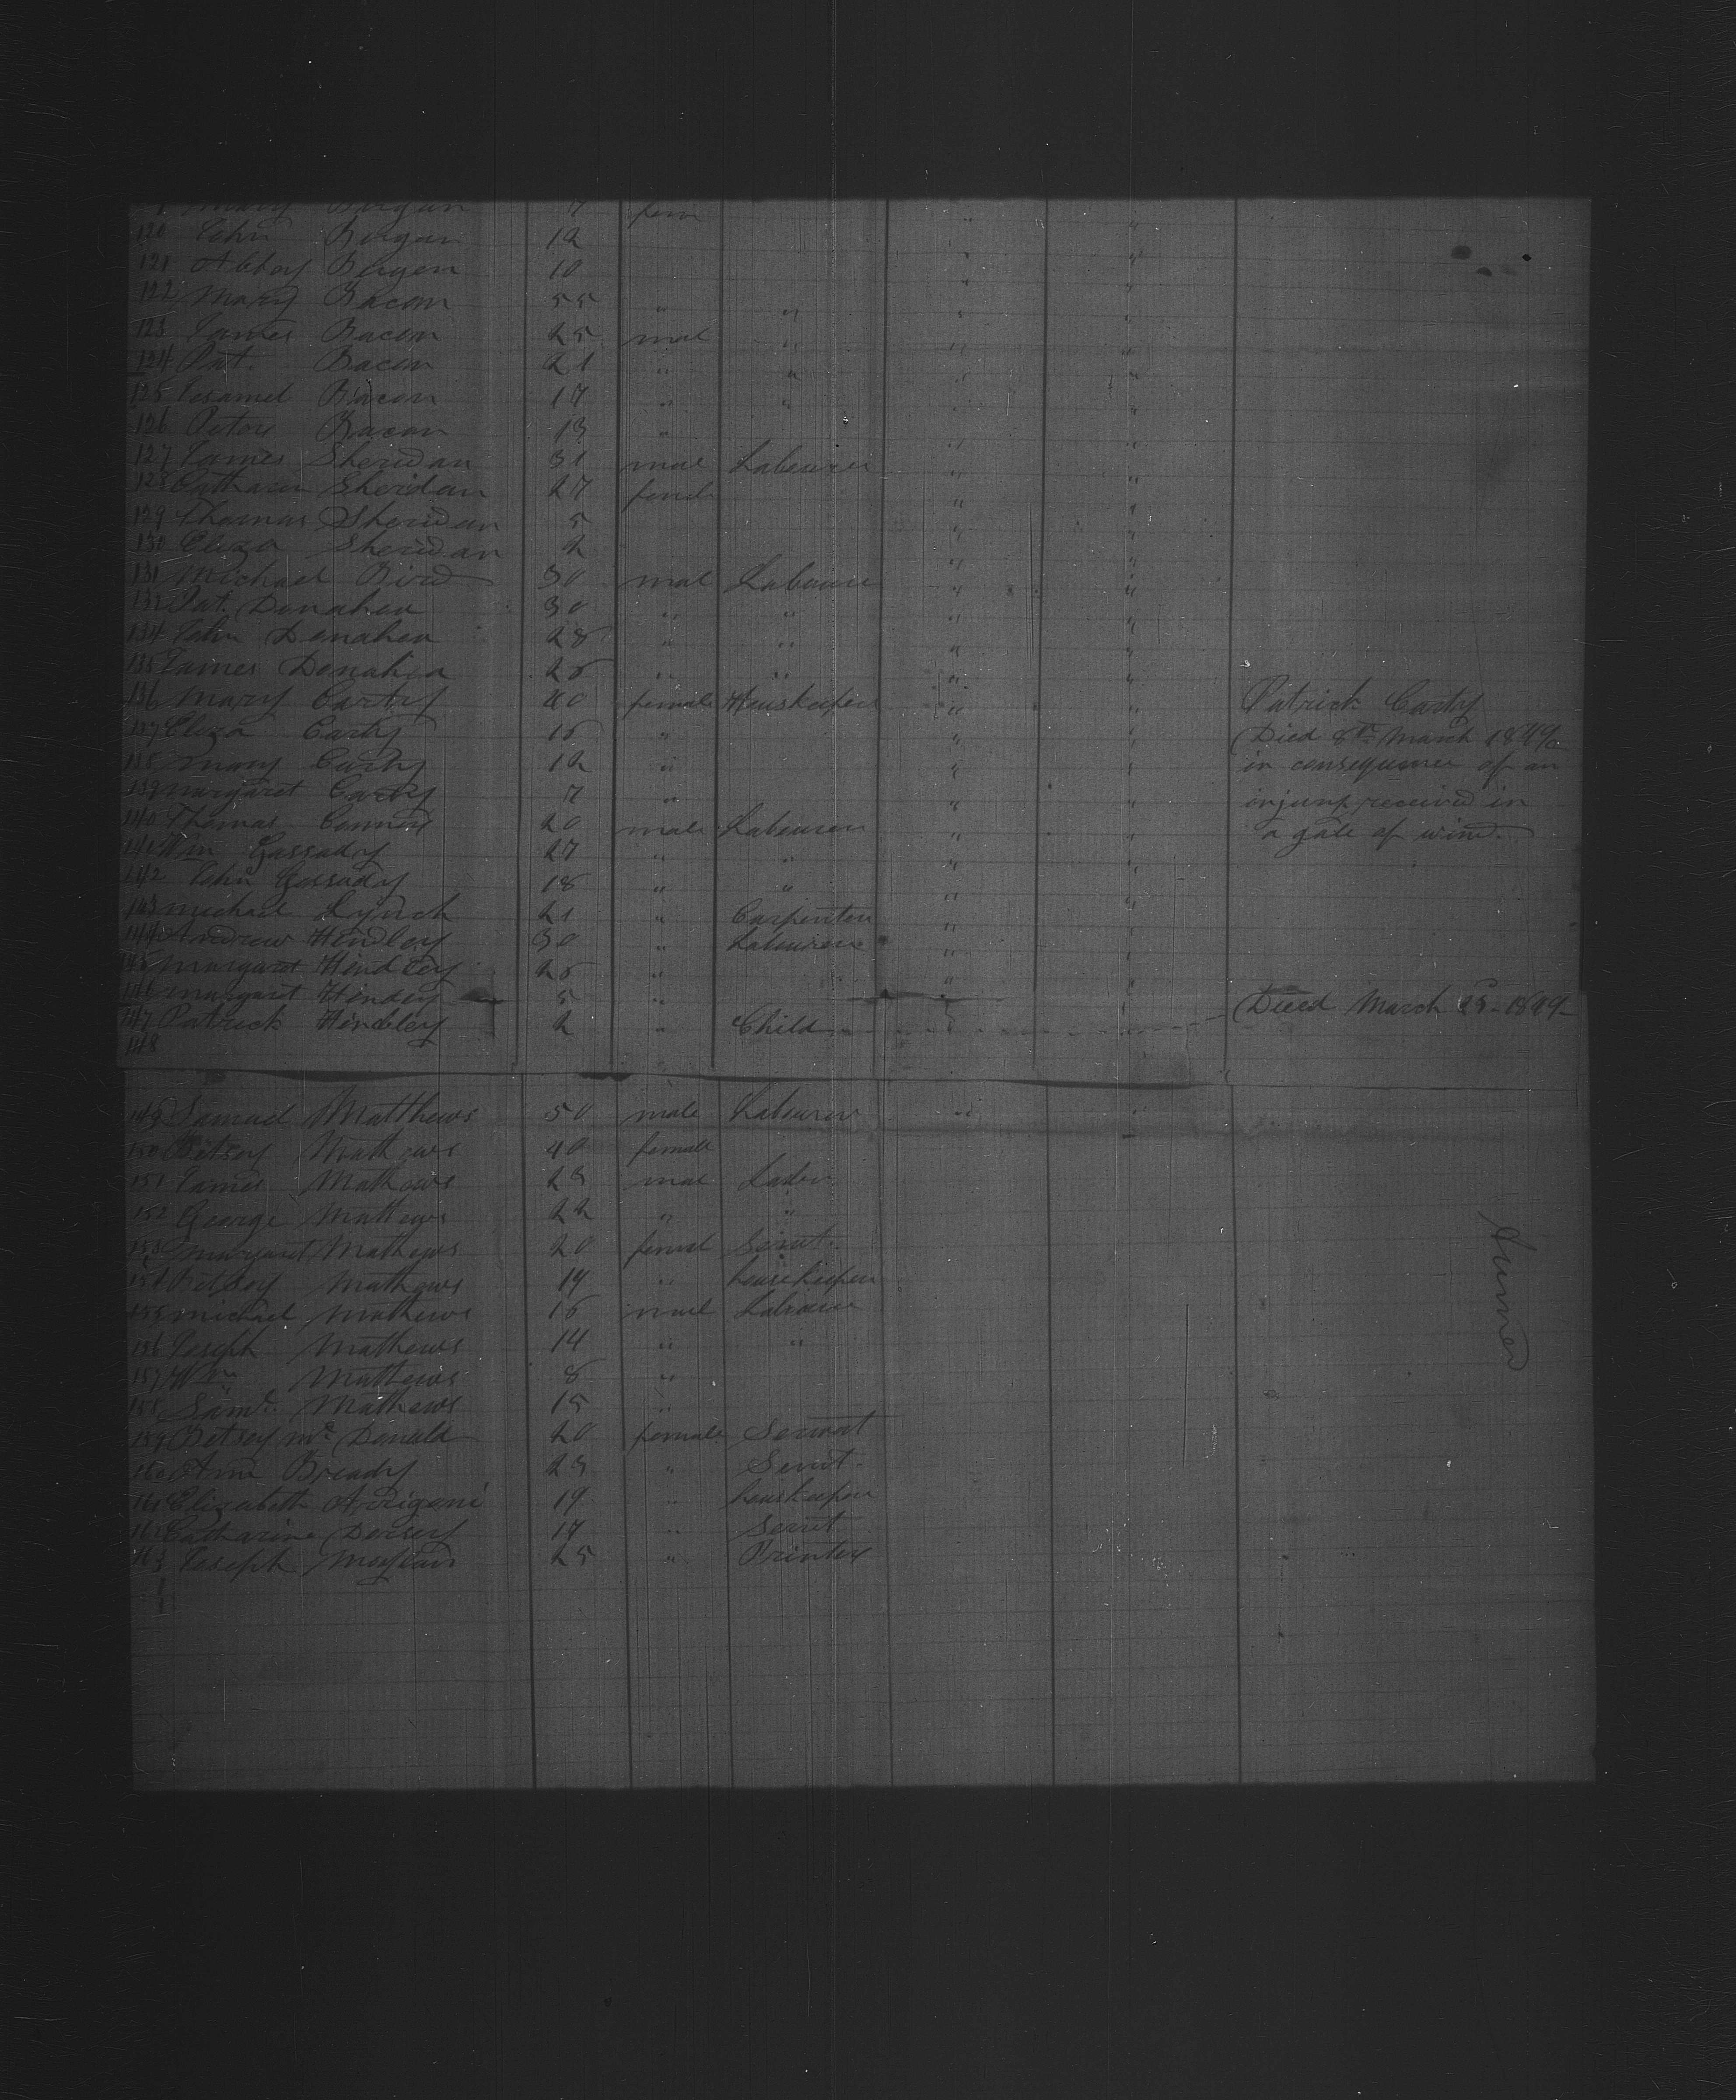 Mary Bergan 7 fem "
120 John Bergan 12 " "
121 Abbey Bergen 10 " "
122 Mary Bacon 55 " " " "
123 James Bacon 25 mal " " "
124 Pat. Bacon 21 " " " "
125 Bacon 17 " " " "
126 Peter Bacon 13 " " "
127 James Sheridan 31 male Labourer " "
128 Catharin Sheridan 27 female " "
129 Thomas Sheridan 5 " "
130 Eliza Sheridan 2 " "
131 Michael Bird 30 mal Labourer " "
132 Pat. Donahea 30 " " " "
134 John Donahea 28 " " " "
135 James Donahea " " " "
136 Mary Carty 40 female Houskeeper " " Patrick Carty
137 Eliza Carty " " " Died 8th March 1849
138 Mary Carty 12 " " " in consequence of an
139 Margaret Carty 7 " " " injury received in
140 Thomas 20 male Labourer " " a gale of wind.
141 Wm Gassady 27 " " " "
142 John Gassady 18 " " " "
143 Michael Lynch 21 " Carpenter " "
144 Andrew Hindley 30 " Labourer " "
145 Margaret Hindley " " "
146 Margaret Hindley 5 " "
147 Patrick Hindley 2 " Child Died March 1849
148
149 Samuel Matthews 50 male Labourer " "
150 Betsey Mathews 40 female
151 James Mathews 23 mal Labor
152 George Mathews 22 " "
153 Margaret Mathews 20 femal Servt.
154 Betsey Mathews 19 " housekeeper
155 Michael Mathews 16 mal Labourer
156 Joseph Mathews 14 " "
157 Wm Mathews 8 "
158 Saml. Mathews 15 "
159 Betsey Mc Donald 20 female Servant
160 Ann Bready 23 " Servt.
161 Elizabeth Arrigoni 19 " houskeeper
162 Catharine Dorsey 17 " Servt
163 Joseph Moylan 25 " Printer
Sumner